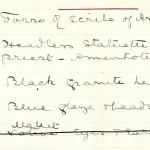 Torso of Scribe of Am
Headless Statuette
priest - Amenhote
Black granite he
Blue glaze heads